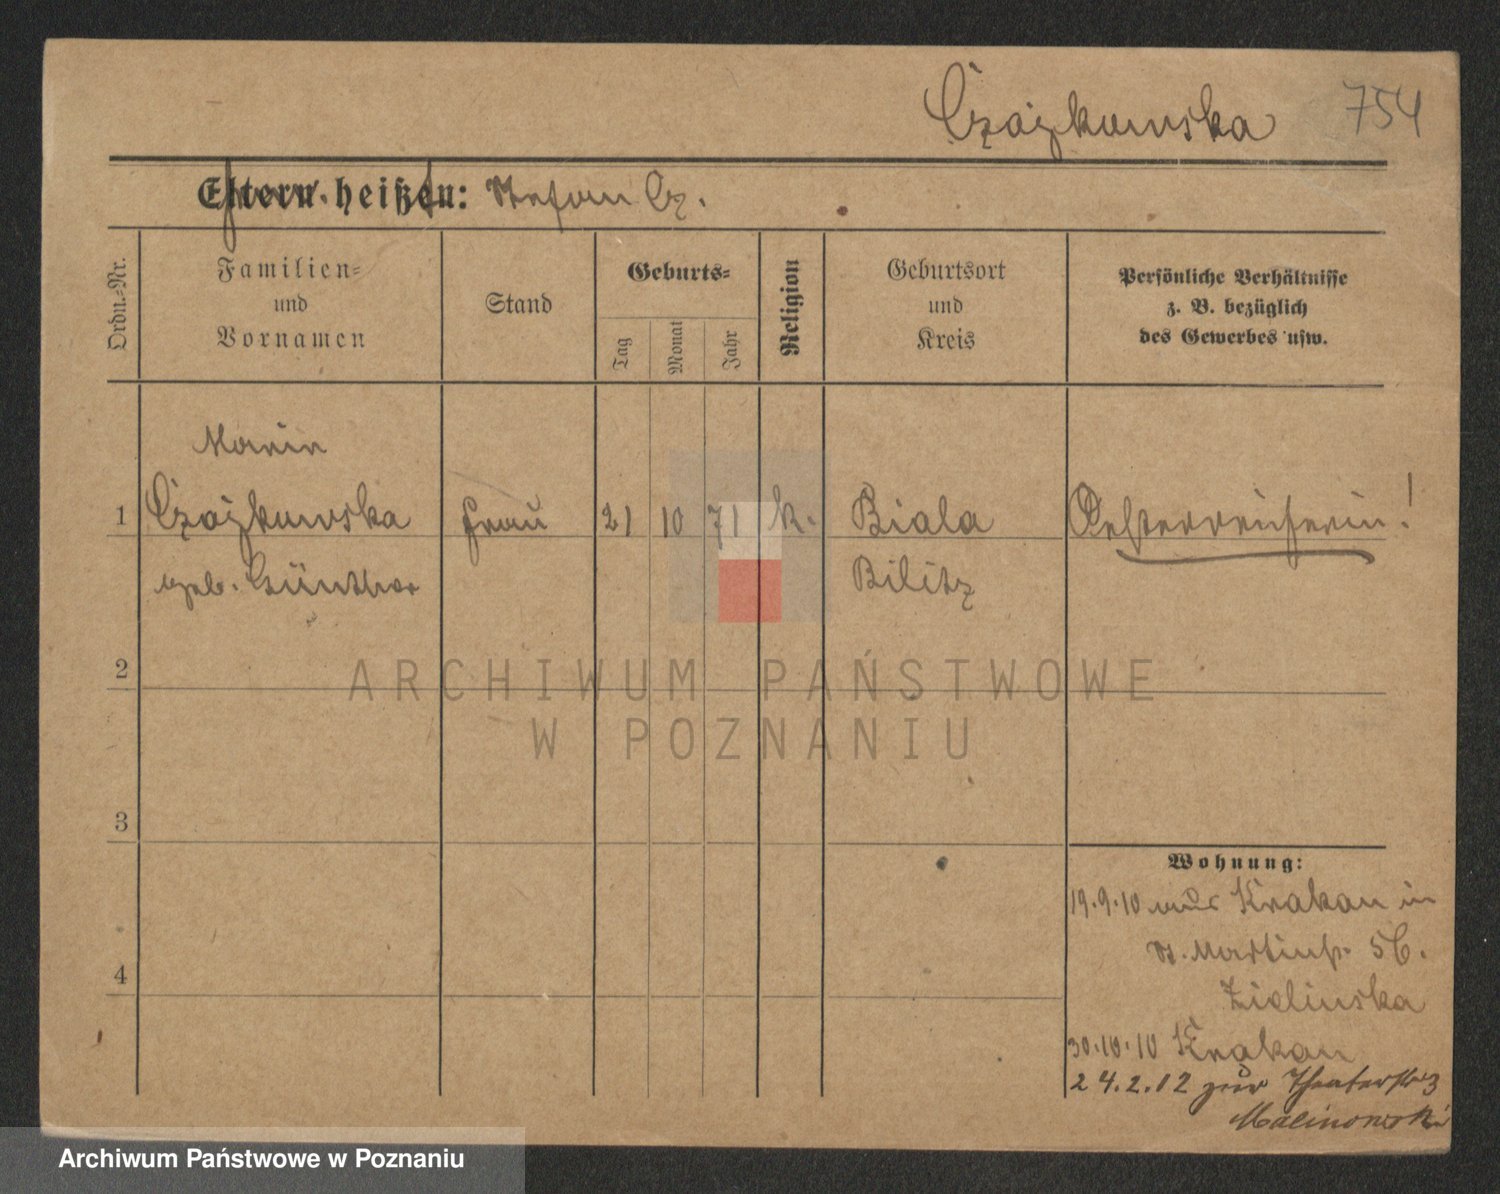 Czajkowska 754
Eltern heißen: Stefan Cz.
Ordn.-Nr.
Familien-
und
Vornamen
Stand
Geburts-
Tag
Monat
Jahr
Religion
Geburtsort
und
Kreis
Persönliche Verhältnisse
z. B. bezüglich
des Gewerbes usw.
Marie
1 Czajkowska Frau 21 10 71 k. Biala Oesterreicherin!
geb. Günther Bilitz
2
ARCHIWUM PAŃSTWOWE
W POZNANIU
3
Wohnung:
19.9.10 aus Krakau in
St. Martinstr. 56.
Zielinska
4
30.10.10 Krakau
24.2.12 zur Theaterstr 3
Malinowski
Archiwum Państwowe w Poznaniu